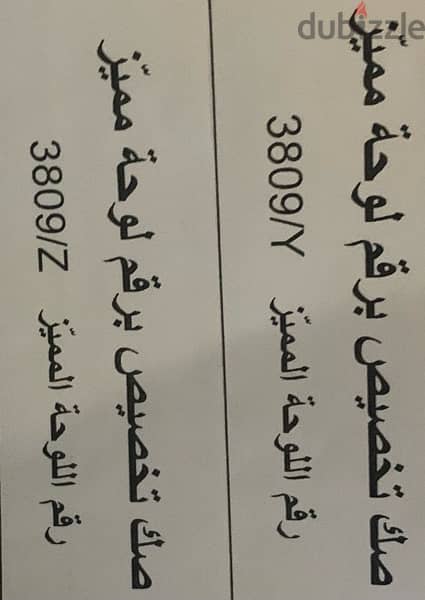 dubizzle
صك تخصيص برقم لوحة مميّز
رقم اللوحة المميّز 3809/Y
صك تخصيص برقم لوحة مميّز
رقم اللوحة المميّز 3809/Z